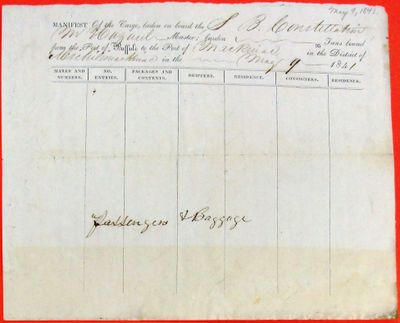 May 9, 1841
MANIFEST Of the Cargo, laden on board the S. B. Constitution
Master; burden Tons bound
from the Port of Buffalo to the Port of Mackinac in the District of
Michilimackinac in the May 9 1841
MARKS AND NUMBERS. NO. ENTRIES. PACKAGES AND CONTENTS. SHIPPERS. RESIDENCE. CONSIGNEES. RESIDENCE.
Passengers & Baggage